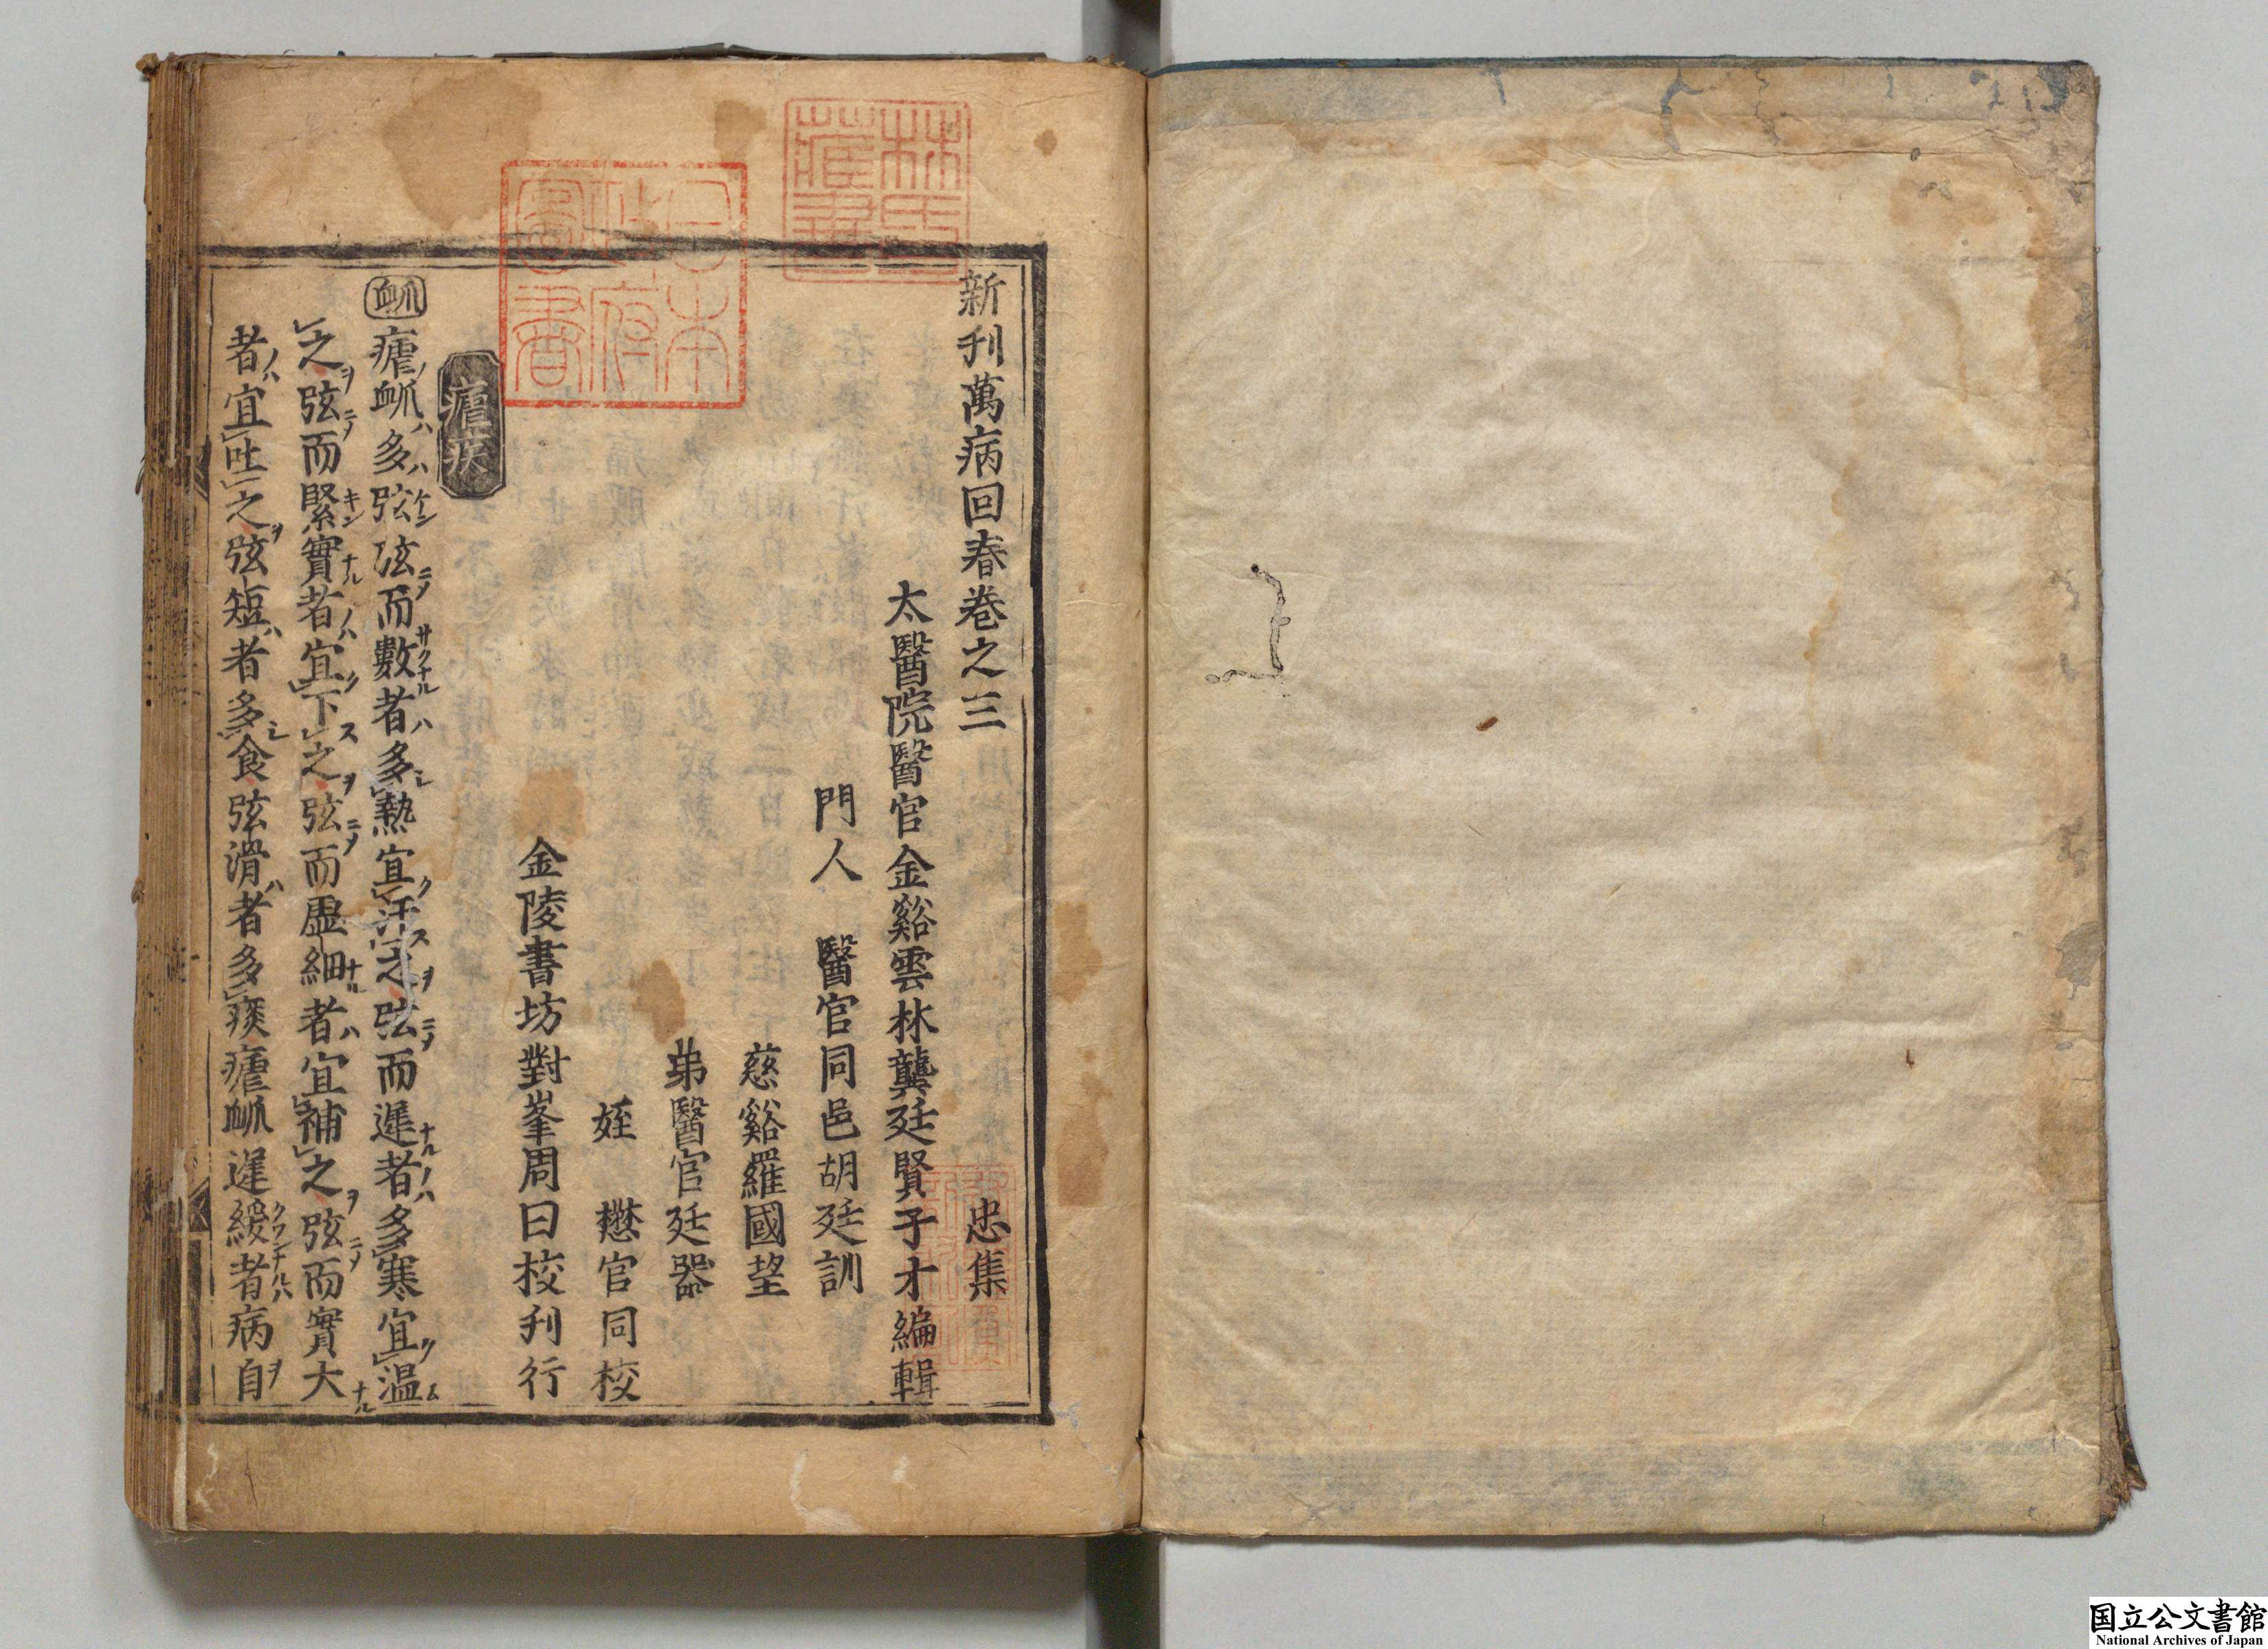 新刊萬病回春巻之三　忠集
太醫院醫官金谿雲林龔廷賢子才編輯
門人　醫官同邑胡廷訓
慈谿羅國望
弟醫官廷器
姪　懋官同校
金陵書坊對峯周曰校刊行
瘧疾
衇
瘧衇多弦弦而數者多熱宜汗之弦而遲者多寒宜温
之弦而緊實者宜下之弦而虛細者宜補之弦而實大
者宜吐之弦短者多食弦滑者多痰瘧衇遲緩者病自
林氏藏書
日本政府圖書
国立公文書館
National Archives of Japan